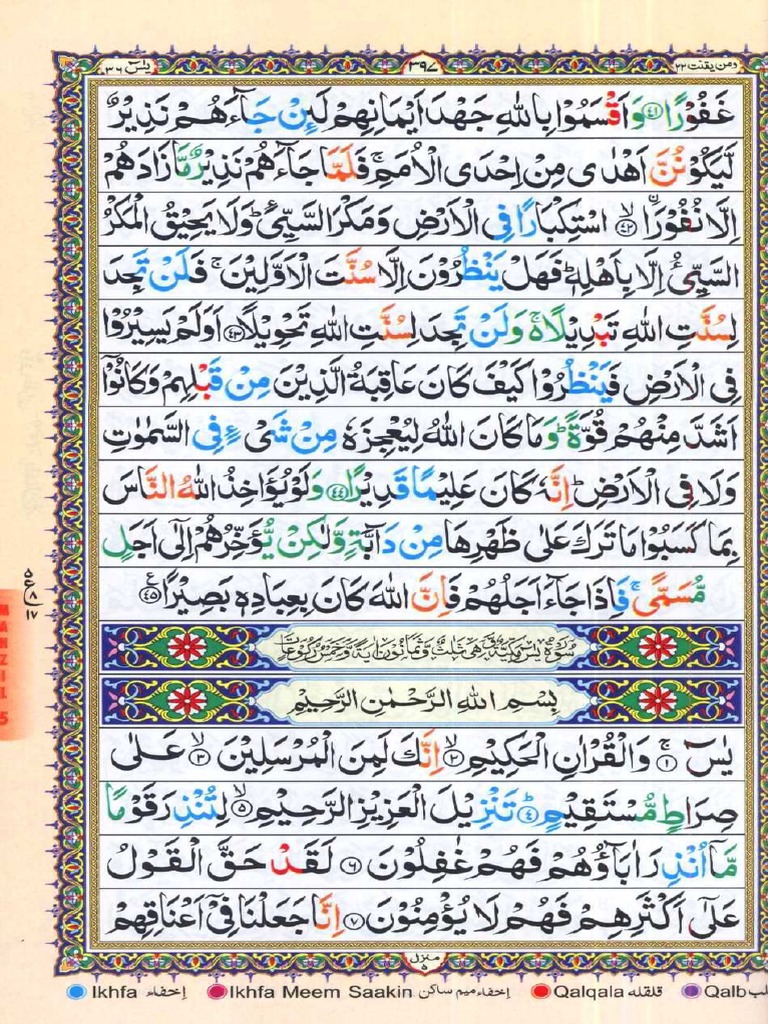 ومن یقنت ۲۲ ۳۹۷ یٰسٓ ۳۶
غَفُوْرًا ﴿۴۱﴾ وَاَقْسَمُوْا بِاللّٰهِ جَهْدَ اَیْمَانِهِمْ لَئِنْ جَآءَهُمْ نَذِیْرٌ
لَّیَكُوْنُنَّ اَهْدٰی مِنْ اِحْدَی الْاُمَمِ ۚ فَلَمَّا جَآءَهُمْ نَذِیْرٌ مَّا زَادَهُمْ
اِلَّا نُفُوْرًا ﴿۴۲﴾ۙ اسْتِكْبَارًا فِی الْاَرْضِ وَمَكْرَ السَّیِّئِ ؕ وَلَا یَحِیْقُ الْمَكْرُ
السَّیِّئُ اِلَّا بِاَهْلِهٖ ؕ فَهَلْ یَنْظُرُوْنَ اِلَّا سُنَّتَ الْاَوَّلِیْنَ ۚ فَلَنْ تَجِدَ
لِسُنَّتِ اللّٰهِ تَبْدِیْلًا ۚ۬ وَلَنْ تَجِدَ لِسُنَّتِ اللّٰهِ تَحْوِیْلًا ﴿۴۳﴾ اَوَلَمْ یَسِیْرُوْا
فِی الْاَرْضِ فَیَنْظُرُوْا كَیْفَ كَانَ عَاقِبَةُ الَّذِیْنَ مِنْ قَبْلِهِمْ وَكَانُوْۤا
اَشَدَّ مِنْهُمْ قُوَّةً ؕ وَمَا كَانَ اللّٰهُ لِیُعْجِزَهٗ مِنْ شَیْءٍ فِی السَّمٰوٰتِ
وَلَا فِی الْاَرْضِ ؕ اِنَّهٗ كَانَ عَلِیْمًا قَدِیْرًا ﴿۴۴﴾ وَلَوْ یُؤَاخِذُ اللّٰهُ النَّاسَ
بِمَا كَسَبُوْا مَا تَرَكَ عَلٰی ظَهْرِهَا مِنْ دَآبَّةٍ وَّلٰكِنْ یُّؤَخِّرُهُمْ اِلٰۤی اَجَلٍ
مُّسَمًّی ۚ فَاِذَا جَآءَ اَجَلُهُمْ فَاِنَّ اللّٰهَ كَانَ بِعِبَادِهٖ بَصِیْرًا ﴿۴۵﴾
۵
ع
۸
۱۷
MANZIL 5
سُوْرَةُ یٰسٓ مَكِّیَّةٌ وَّهِیَ ثَلٰثٌ وَّثَمَانُوْنَ اٰیَةً وَّخَمْسُ رُكُوْعَاتٍ
بِسْمِ اللّٰهِ الرَّحْمٰنِ الرَّحِیْمِ
یٰسٓ ﴿۱﴾ۚ وَالْقُرْاٰنِ الْحَكِیْمِ ﴿۲﴾ۙ اِنَّكَ لَمِنَ الْمُرْسَلِیْنَ ﴿۳﴾ۙ عَلٰی
صِرَاطٍ مُّسْتَقِیْمٍ ﴿۴﴾ؕ تَنْزِیْلَ الْعَزِیْزِ الرَّحِیْمِ ﴿۵﴾ۙ لِتُنْذِرَ قَوْمًا
مَّاۤ اُنْذِرَ اٰبَآؤُهُمْ فَهُمْ غٰفِلُوْنَ ﴿۶﴾ لَقَدْ حَقَّ الْقَوْلُ
عَلٰۤی اَكْثَرِهِمْ فَهُمْ لَا یُؤْمِنُوْنَ ﴿۷﴾ اِنَّا جَعَلْنَا فِیْۤ اَعْنَاقِهِمْ
منزل ۵
Ikhfa إخفاء Ikhfa Meem Saakin إخفاء ميم ساكن Qalqala قلقله Qalb